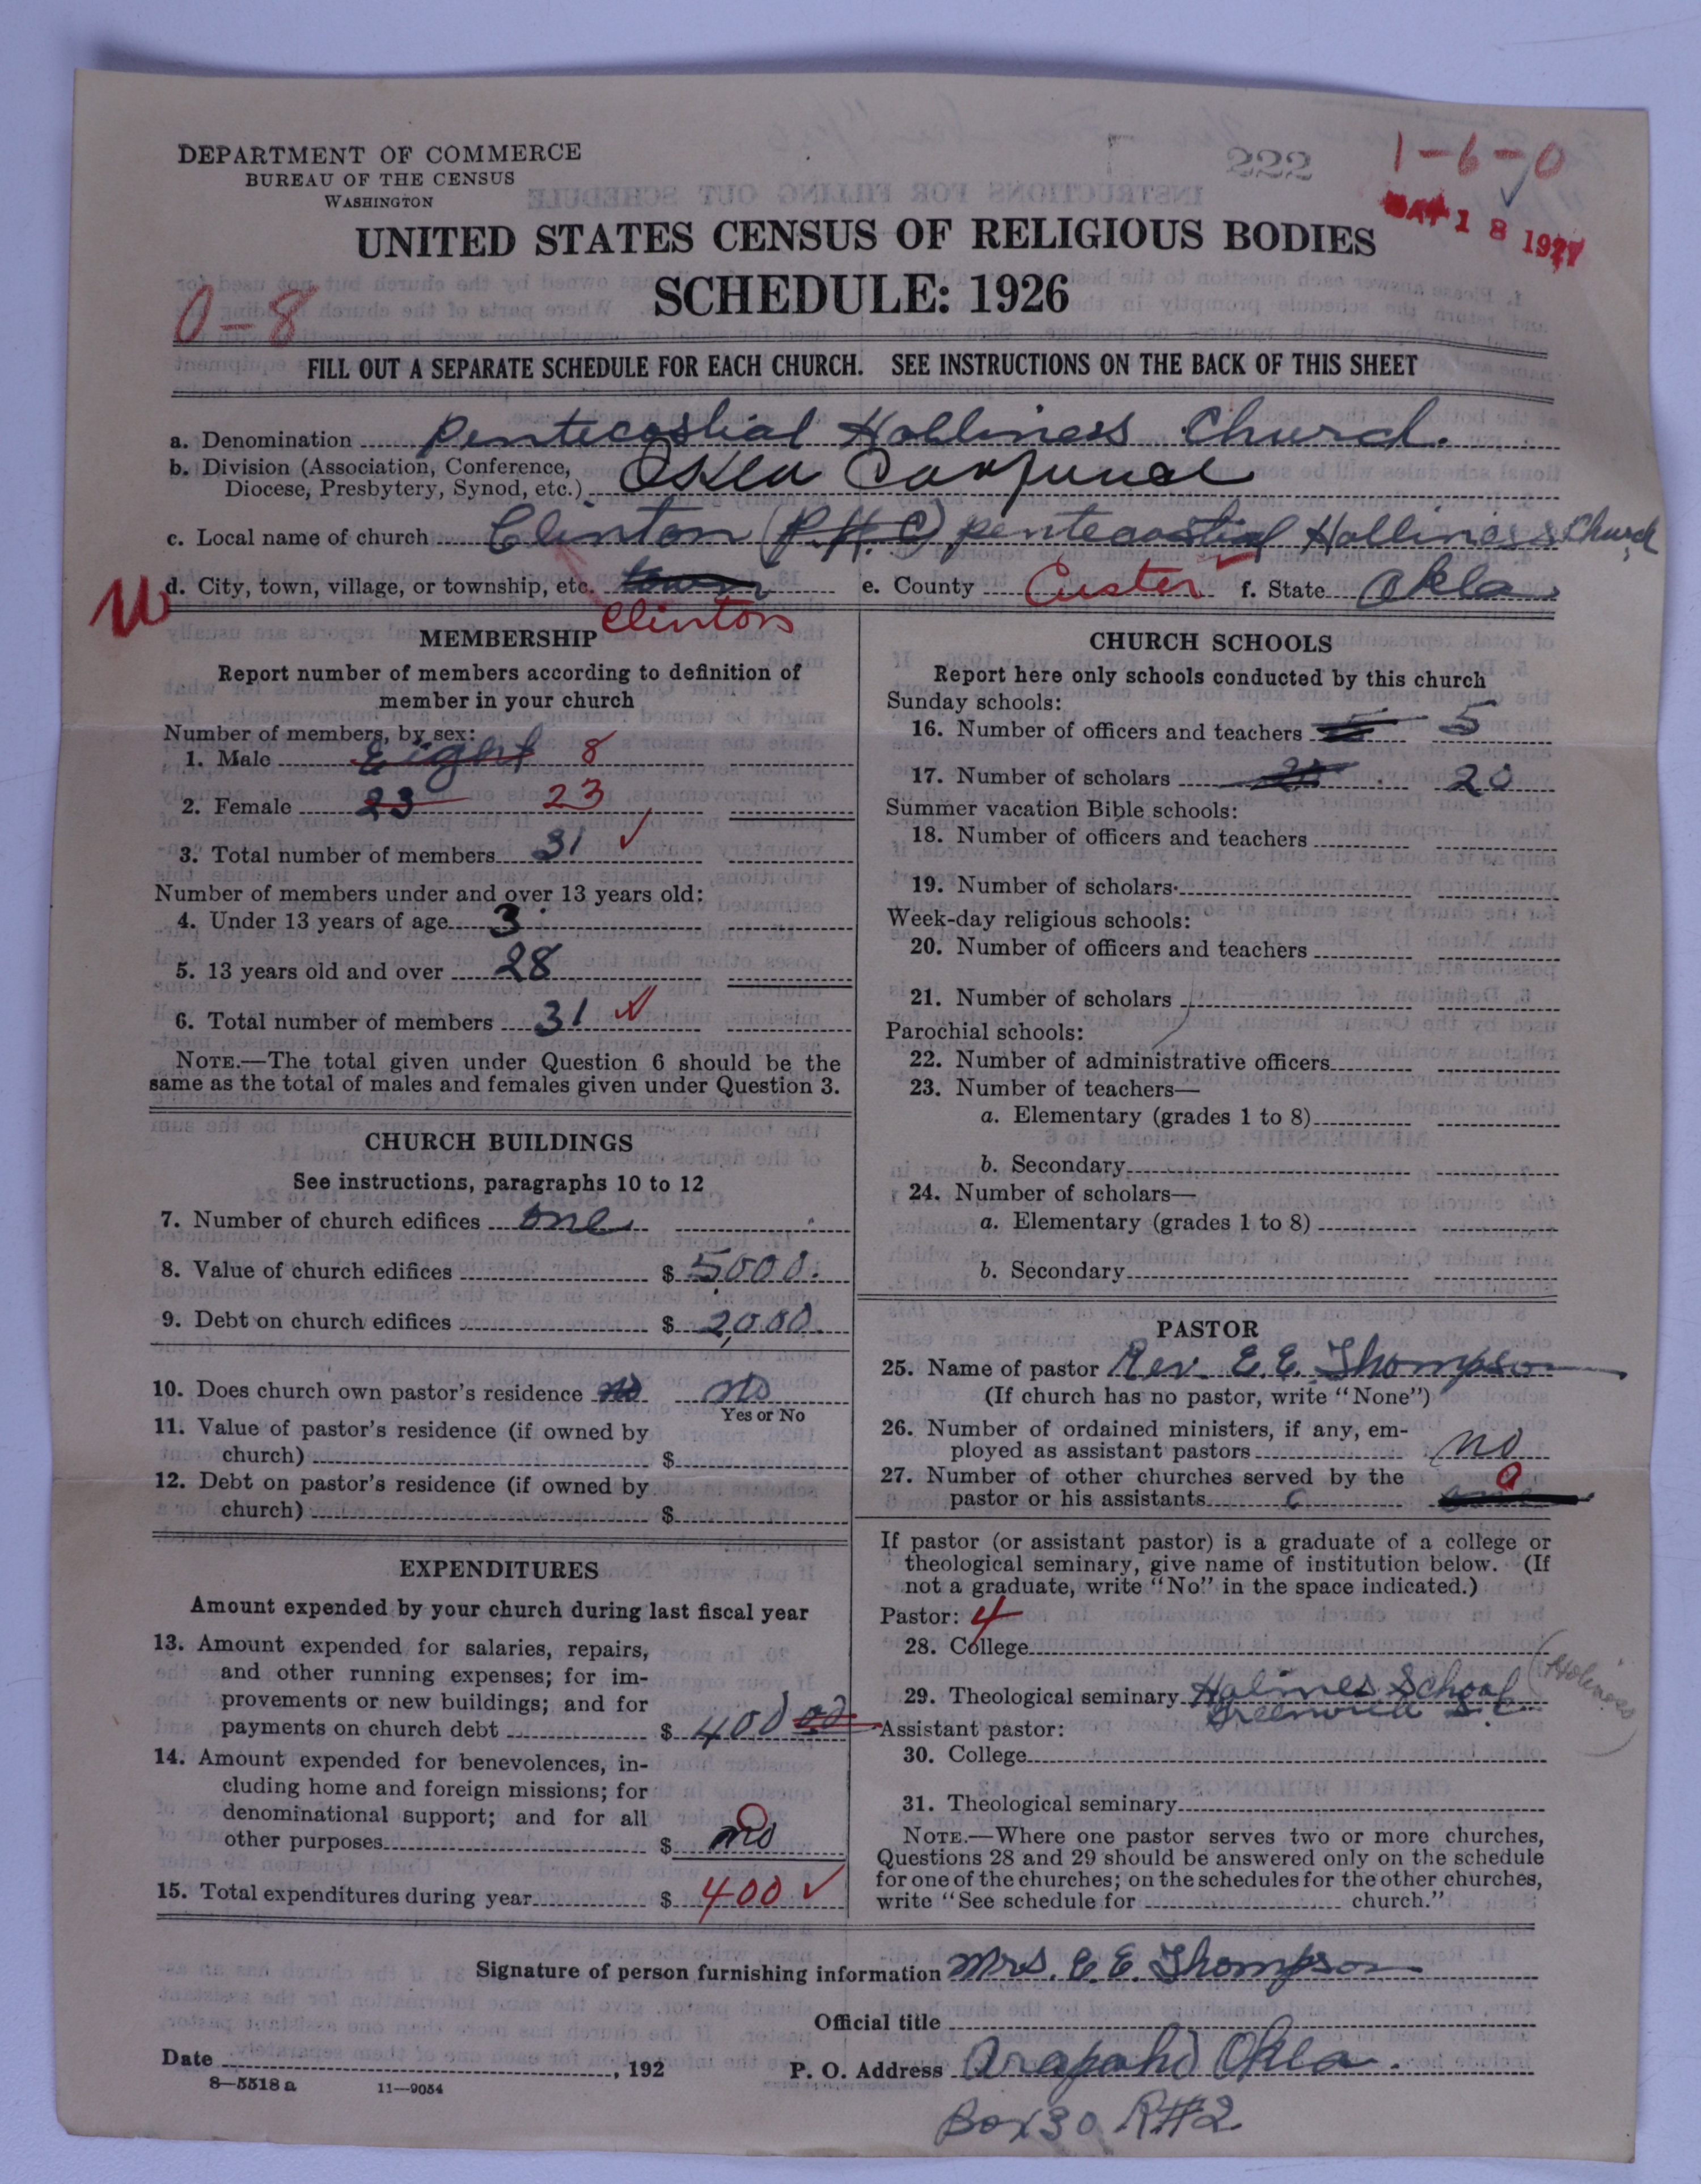 DEPARTMENT OF COMMERCE
BUREAU OF THE CENSUS
WASHINGTON
222
1-6-0
18 1927
UNITED STATES CENSUS OF RELIGIOUS BODIES
SCHEDULE: 1926
0-8
FILL OUT A SEPARATE SCHEDULE FOR EACH CHURCH. SEE INSTRUCTIONS ON THE BACK OF THIS SHEET
a. Denomination Pentecostial Holliness Church.
b. Division (Association, Conference,
Diocese, Presbytery, Synod, etc.) Okla
c. Local name of church Clinton (P.H.C) pentecostial Holliness Church
d. City, town, village, or township, etc. town Clinton e. County Custer f. State Okla
MEMBERSHIP
Report number of members according to definition of
member in your church
Number of members, by sex:
1. Male Eight 8
2. Female 23 23
3. Total number of members 31
Number of members under and over 13 years old:
4. Under 13 years of age 3
5. 13 years old and over 28
6. Total number of members 31
NOTE.—The total given under Question 6 should be the
same as the total of males and females given under Question 3.
CHURCH BUILDINGS
See instructions, paragraphs 10 to 12
7. Number of church edifices one
8. Value of church edifices $ 5000.
9. Debt on church edifices $ 2,000.
10. Does church own pastor's residence no no
Yes or No
11. Value of pastor's residence (if owned by
church) $
12. Debt on pastor's residence (if owned by
church) $
EXPENDITURES
Amount expended by your church during last fiscal year
13. Amount expended for salaries, repairs,
and other running expenses; for im-
provements or new buildings; and for
payments on church debt $ 400 00
14. Amount expended for benevolences, in-
cluding home and foreign missions; for
denominational support; and for all
other purposes $ no 0
15. Total expenditures during year $ 400
CHURCH SCHOOLS
Report here only schools conducted by this church
Sunday schools:
16. Number of officers and teachers 5
17. Number of scholars 20 20
Summer vacation Bible schools:
18. Number of officers and teachers
19. Number of scholars
Week-day religious schools:
20. Number of officers and teachers
21. Number of scholars
Parochial schools:
22. Number of administrative officers
23. Number of teachers—
a. Elementary (grades 1 to 8)
b. Secondary
24. Number of scholars—
a. Elementary (grades 1 to 8)
b. Secondary
PASTOR
25. Name of pastor Rev. E.E. Thompson
(If church has no pastor, write "None")
26. Number of ordained ministers, if any, em-
ployed as assistant pastors no
27. Number of other churches served by the
pastor or his assistants one 0
If pastor (or assistant pastor) is a graduate of a college or
theological seminary, give name of institution below. (If
not a graduate, write "No" in the space indicated.)
Pastor: 4
28. College
29. Theological seminary Holmes School (Holiness)
S.C.
Assistant pastor:
30. College
31. Theological seminary
NOTE.—Where one pastor serves two or more churches,
Questions 28 and 29 should be answered only on the schedule
for one of the churches; on the schedules for the other churches,
write "See schedule for church."
Signature of person furnishing information Mrs. E.E. Thompson
Official title
Date , 192
P. O. Address Arapaho Okla.
8—5518a 11—9054
Box 30 R#2